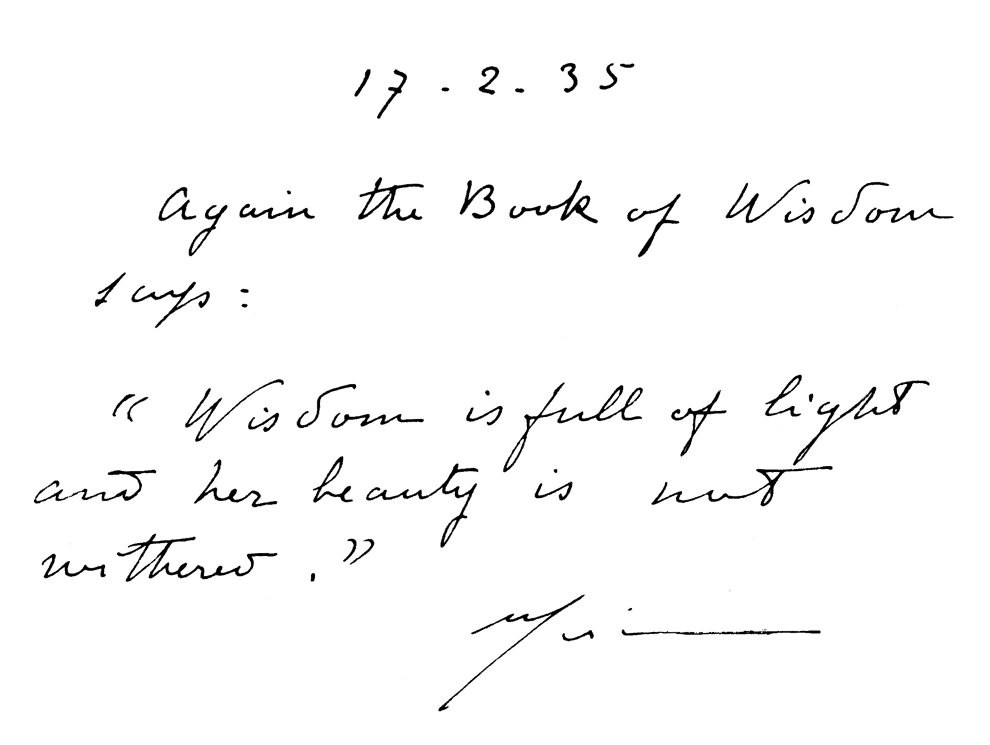 17.2.35
Again the Book of Wisdom
says:
"Wisdom is full of light
and her beauty is not
withered."